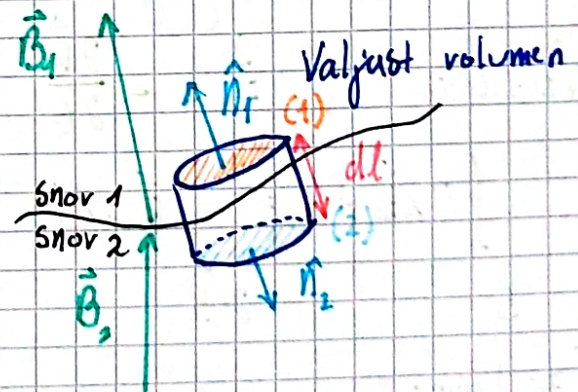 B⃗₁
Valjast volumen
n̂₁
(1)
dl
Snov 1
Snov 2
(2)
B⃗₂
n̂₂